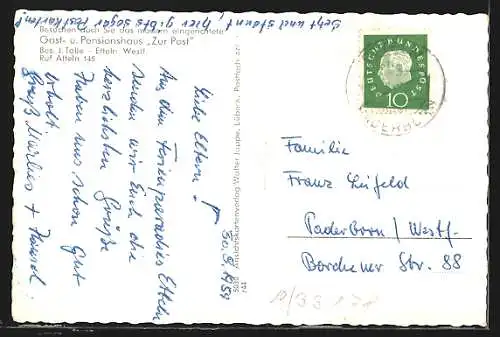 Jetzt und staunt, hier gibts sogar Postkarten!
Besuchen auch Sie das modern eingerichtete
Gast- u. Pensionshaus „Zur Post"
Bes. J. Tölle - Etteln Westf.
Ruf Atteln 145
30.9.1959
Liebe Eltern!
Aus dem Ferienparadies Etteln
senden wir Euch die
herzlichsten Grüße
Haben uns schon gut
erholt.
Gruß Marlies +
Ansichtskartenverlag Walter Lübeck, Postfach
DEUTSCHE BUNDESPOST
10
PADERBORN
Familie
Franz Leifeld
Paderborn / Westf.
Borchener Str. 88